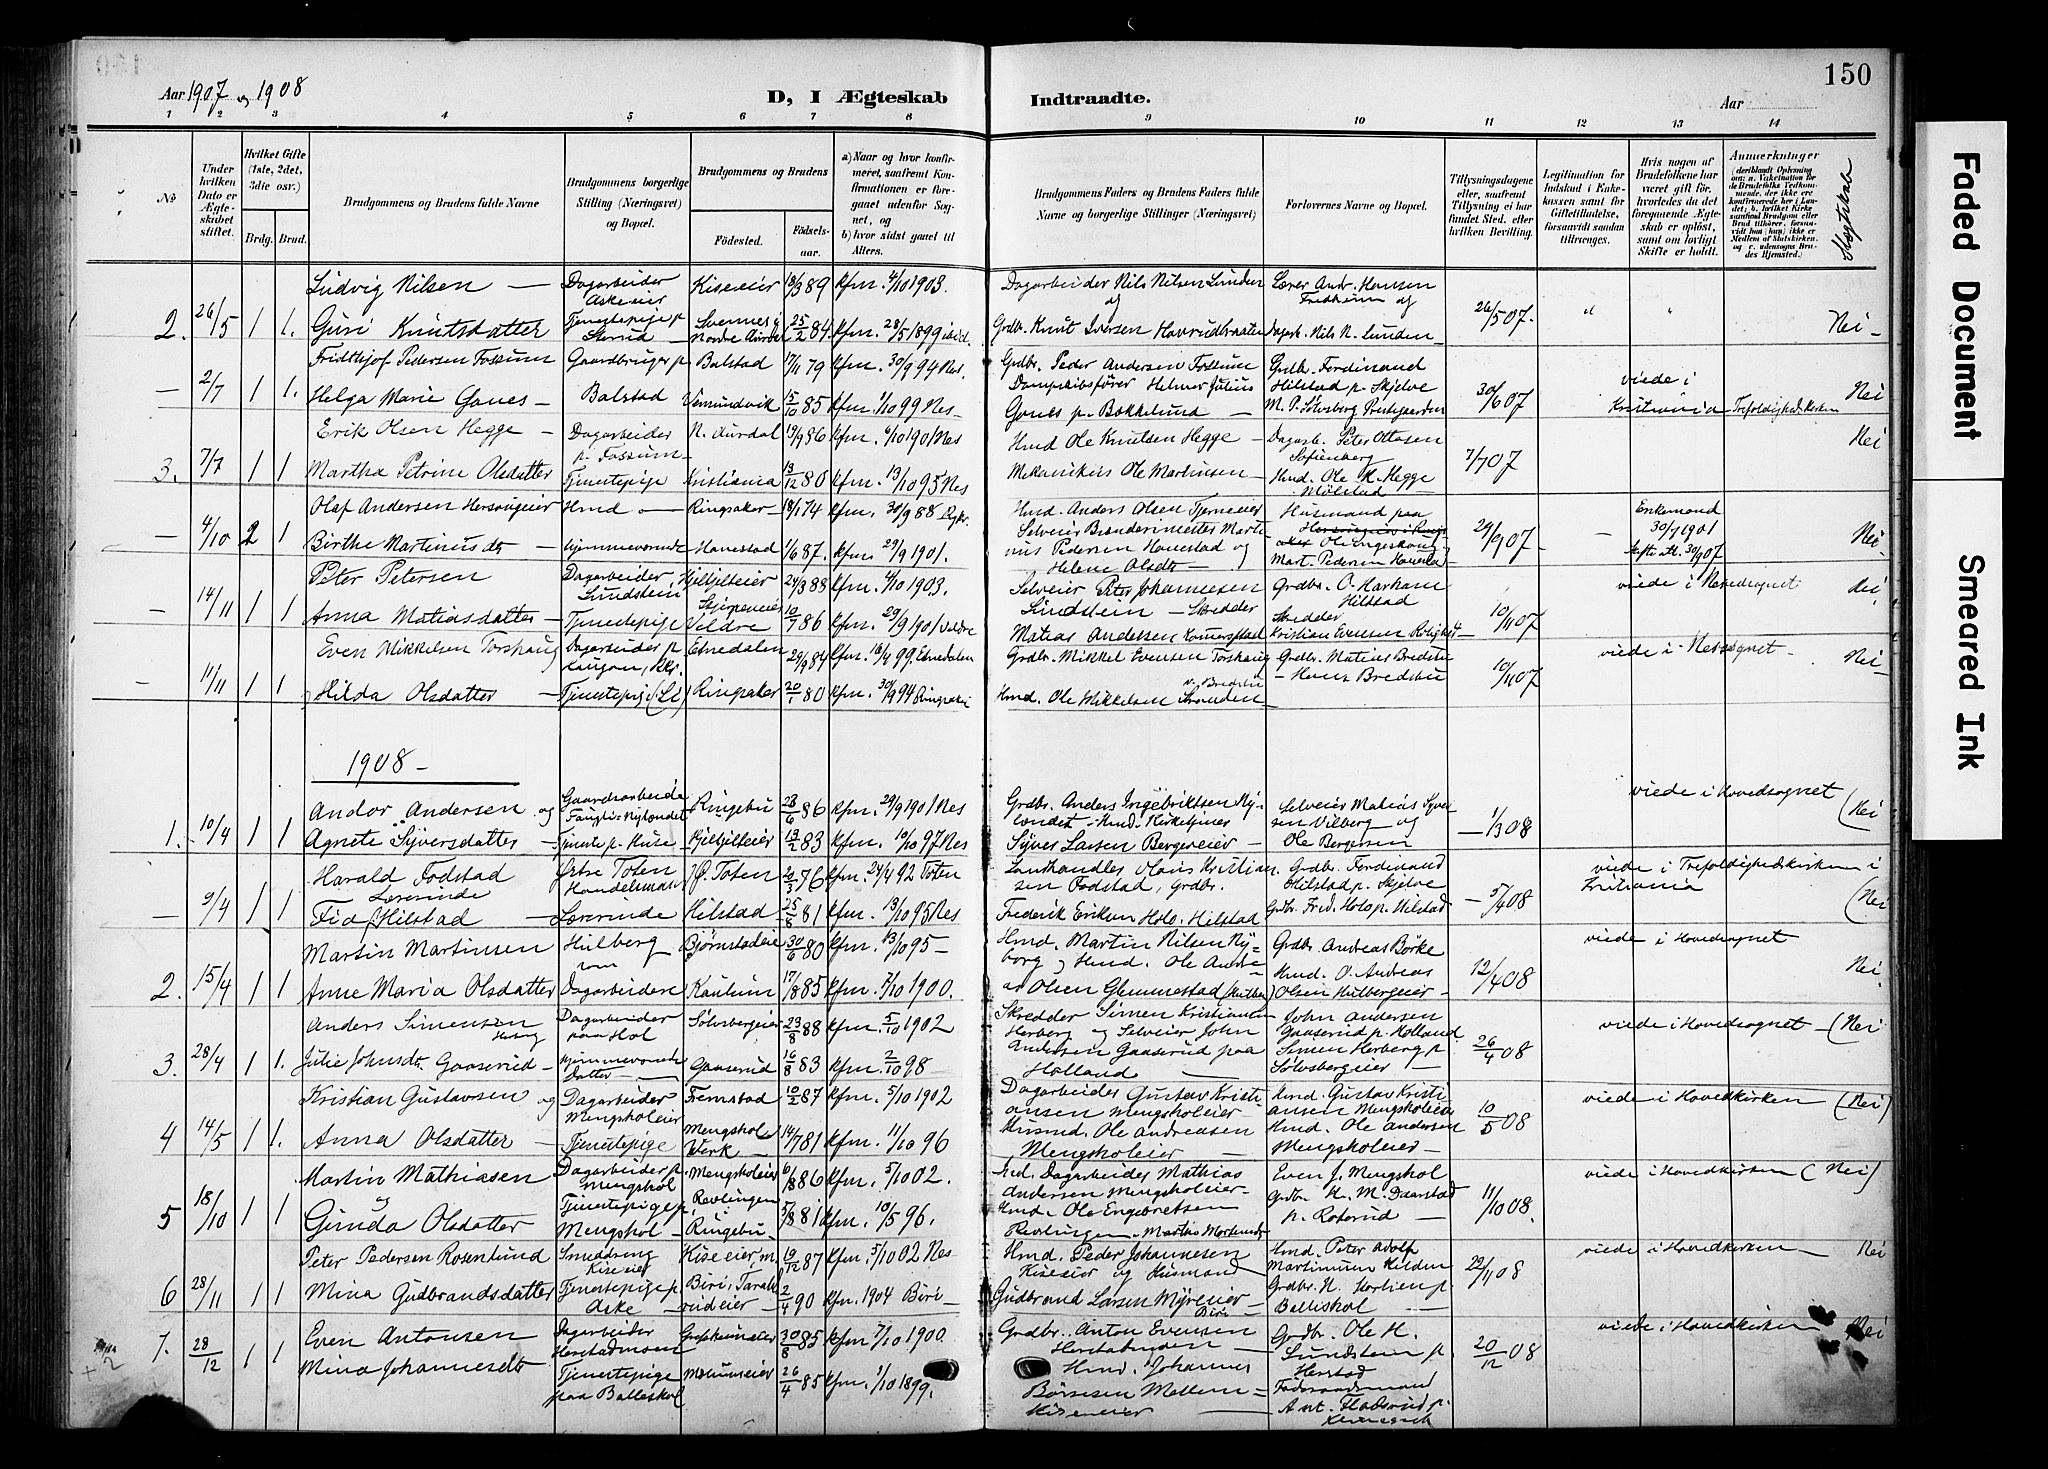 150
Aar 1907 og 1908
D, I Ægteskab Indtraadte.
Aar
1 2 3 4 5 6 7 8 9 10 11 12 13 14
No
Under hvilken Dato er Ægteskabet stiftet.
Hvilket Gifte (1ste, 2det, 3die osv.)
Brdg. Brud.
Brudgommens og Brudens fulde Navne
Brudgommens borgerlige Stilling (Næringsvei) og Bopæl.
Brudgommens og Brudens
Födested. Födselsaar.
a) Naar og hvor konfirmeret, saafremt Konfirmationen er foregaaet udenfor Sognet, og
b) hvor sidst gaaet til Alters.
Brudgommens Faders og Brudens Faders fulde Navne og borgerlige Stillinger (Næringsvei)
Forlovernes Navne og Bopæl.
Tillysningsdagene eller, saafremt Tillysning ei har fundet Sted, efter hvilken Bevilling.
Legitimation for Indskud i Enkekassen samt for Giftetilladelse, forsaavidt saadan tiltrenges.
Hvis nogen af Brudefolkene har været gift för, hvorledes da det foregaaende Ægteskab er oplöst, samt om lovligt Skifte er holdt.
Anmerkninger
Ludvig Nilsen — Dagarbeider Askeeier Kiseeier 13/3 89 kfm. 4/10 1903. Dagarbeider Nils Nilsen Lunden og Lærer Andr. Hansen Fredheim og
2. 26/5 1 1. Guri Knutsdatter Tjenestepige p. Svennes i Nordre Aurdal 25/2 84 kfm. 28/5 1899 ibid. Grdbr. Knut Iversen Havrudbraaten Dagarb. Nils N. Lunden 26/5 07. Nei
Fridthjof Pedersen Fossum Gaardbruger p. Balstad 17/11 79 kfm. 30/9 94 Nes. Grdbr. Peder Andersen Fossum Grdb. Ferdinand Hilstad p. Skjelve viede i
— 2/7 1 1. Helga Marie Gones — Balstad Vemundvik 15/10 85 kfm. 1/10 99 Nes — Dampskibsfører Helmer Julius Gones p. Bakkelund — M. P. Sølvsberg Prestgaarden 30/6 07 Kristiania Trefoldighedskirken Nei
Erik Olsen Hegge — Dagarbeider p. Fossum N. Aurdal 19/9 86 kfm. 6/10 1901 Nes Hmd Ole Knutsen Hegge — Dagarb. Peter Ottosen Sofienberg Nei
3. 7/7 1 1 Martha Petrine Olsdatter Tjenestepige Kristiania 13/12 80 kfm. 13/10 95 Nes Mekanikus Ole Martinsen — Hmd. Ole K. Hegge Mølstad — 7/7 07
Olaf Andersen Hersougeier Hmd — Ringsaker 18/1 74 kfm. 30/9 88 Rgkr. Hmd. Anders Olsen Tjerneeier Husmand paa Enkemand 30/9 1901
— 4/10 2 1 Birthe Martinusdtr hjemmeværende Hanestad 1/6 87. kfm 29/9 1901. Selveier Branderimester Martinus Pedersen Hanestad og Helene Olsdtr — Mart. Pedersen Hanestad 29/9 07 skifte att. 30/9 07 Nei
Peter Petersen Dagarbeider, Lundstein Kjeltjelteier 24/3 88 kfm. 4/10 1903. Selveier Peter Johannesen Lundstein — Skredder Grdbr. O. Harham Hilstad viede i Hovedsognet Nei
— 14/11 1 1 Anna Matiasdatter Tjenestepige Veldre 10/7 86 kfm. 29/9 1901 Veldre Matias Andersen Skredder Kristian Evensen Rolighet 10/11 07
Even Mikkelsen Torshaug Dagarbeider p. Etnedalen 29/9 84 kfm. 16/4 99. Etnedalen Grdbr. Mikkel Evensen Torshaug Grdbr. Matias Bredstu viede i Nessognet — Nei
— 11/11 1 1 Hilda Olsdatter — Tjenestepige (Li) Ringsaker 20/1 80 kfm. 30/9 94 Ringsaker Hmd. Ole Mikkelsen Stranden — Hans Bredstu 10/11 07
1908 —
Andor Andersen og Gaardsarbeider Ringebu 28/6 86 kfm. 29/9 1901 Nes Grdbr. Anders Ingebriktsen Nylandet Selveier Matias Syversen Vilberg og viede i Hovedsognet (Nei
1. 10/4 1 1 Agnete Syversdatter — Tjeneste p. Kise Kjeltjelteier 13/2 83 kfm. 10/10 97 Nes Syver Larsen Bergeeier — Ole Bergersen — 1/3 08
Harald Fodstad Østre Toten Handelsmand Ø. Toten 20/3 76 kfm. 24/4 92 Toten Landhandler Olaus Kristiansen Fodstad, Grdbr. Grdb. Ferdinand Hilstad p. Skjelve viede i Trefoldighedskirken i Kristiania (Nei
— 9/4 1 1 Fia Hilstad — Lærerinde Hilstad 25/8 81 kfm. 13/10 95 Nes Frederik Eriksen Holo. Hilstad Grdbr. Fred. Holo p. Hilstad — 5/4 08
Martin Martinsen Hulberg Bjørnstadeie 30/6 80 kfm. 13/10 95 — Hmd. Martin Nilsen Nyborg og Hmd. Ole Andreas Grdbr. Andreas Børke viede i Hovedsognet
2. 15/4 1 1 Anne Maria Olsdatter Dagarbeidere Kaulum 17/8 85 kfm. 7/10 1900. Olsen Glemmestad Hmd. O. Andreas Olsen Hulbergeier — 12/4 08 Nei
Anders Simensen Herberg Dagarbeider paa Hol Sølvsbergeier 23/8 88 kfm. 5/10 1902 Skredder Simen Kristiansen Herberg og Selveier John John Andersen Gaaserud p. Holland viede i Hovedsognet — (Nei
3. 28/4 1 1. Julie Johnsdtr Gaaserud — hjemmeværende Datter — Gaaserud 16/8 83 kfm. 2/10 98 Andersen Gaaserud paa Holland Simen Herberg p. Sølvsbergeier — 26/4 08
Kristian Gustavsen og Dagarbeider Mengsholeier Fremstad 10/2 87 kfm. 5/10 1902 Dagarbeider Gustav Kristiansen Mengsholeier Hmd. Gustav Kristiansen Mengsholeier viede i Hovedkirken (Nei)
4 14/5 1 1. Anna Olsdatter — Tjenestepige Mengshol Verk — 14/7 81 kfm. 11/10 96 Husmd. Ole Andreasen Mengsholeier — Hmd. Ole Andersen Mengsholeier — 10/5 08
Martin Mathiasen og Dagarbeider p. Mengshol Mengsholeier 6/8 86 kfm. 5/10 02. Dagarbeider Mathias Andersen Mengsholeier — Even J. Mengshol viede i Hovedkirken (Nei)
5 18/10 1 1 Gunda Olsdatter Tjenestepige p. Mengshol Revlingen Ringebu 5/8 81 kfm. 10/5 96. Hmd. Ole Engebretsen Revlingen Grdbr. K. M. Daarstad p. Roterud — 11/10 08.
Peter Pedersen Rosenlund Smeddreng Kiseeier Kiseeier 19/12 87 kfm. 5/10 02 Nes Hmd. Peder Johannesen Kiseeier og Husmand Hmd. Peter Adolf Martinsen Kilden viede i Hovedkirken — Nei
6 28/11 1 1 Mina Gudbrandsdatter Tjenestepige p. Aske Biri 2/4 90 kfm. 1904 Biri — Gudbrand Larsen Myreeier Biri — Grdbr. N. Stortien p. Balleshol — 22/11 08
7. 28/12 1 1 Even Antonsen Dagarbeider 30/8 85 kfm 7/10 1900. Grdbr. Anton Evensen Grdbr. Ole H. Lundstein p. Herstad viede i Hovedkirken Nei
Mina Johannesdtr Tjenestepige paa Balleshol 26/4 85 kfm. 1/10 1899. Hmd. Johannes Børresen Føderaadsmand Ant. Flaterud p. 20/12 08
Faded Document
Smeared Ink